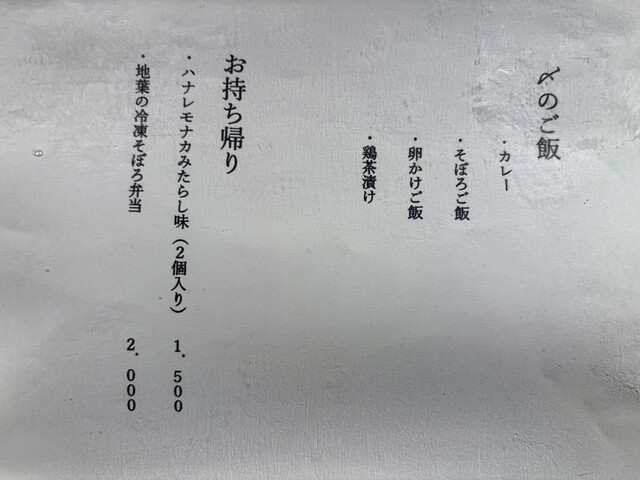 〆のご飯
・カレー
・そぼろご飯
・卵かけご飯
・鶏茶漬け
お持ち帰り
・ハナレモナカみたらし味（2個入り） 1．500
・地葉の冷凍そぼろ弁当 2．000